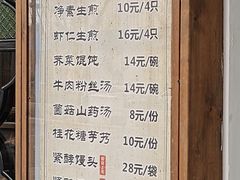 净素生煎 10元/4只
虾仁生煎 16元/4只
荠菜馄饨 14元/碗
牛肉粉丝汤 14元/碗
菌菇山药汤 8元/份
桂花糖芋艿 10元/份
紫酵馒头 28元/袋